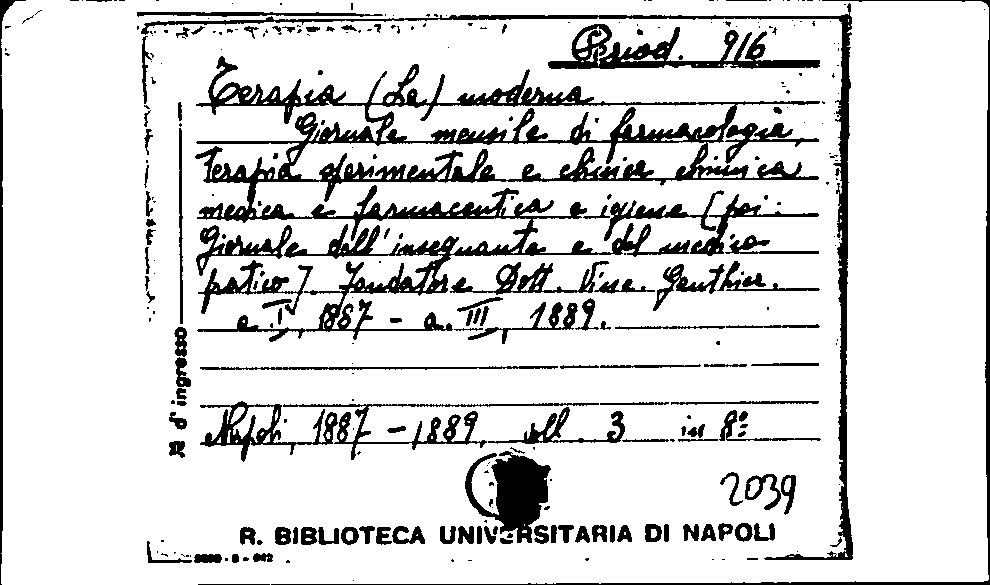 Period. 916
Terapia (La) moderna
Giornale mensile di farmacologia,
Terapia sperimentale e clinica, chimica
medica e farmaceutica e igiene [poi:
Giornale dell'insegnante e del medico
pratico]. Fondatore Dott. Vinc. Gauthier.
a. I, 1887 - a. III, 1889.
Napoli, 1887 - 1889, voll. 3 in 8º
2039
R. BIBLIOTECA UNIVERSITARIA DI NAPOLI
N d'ingresso